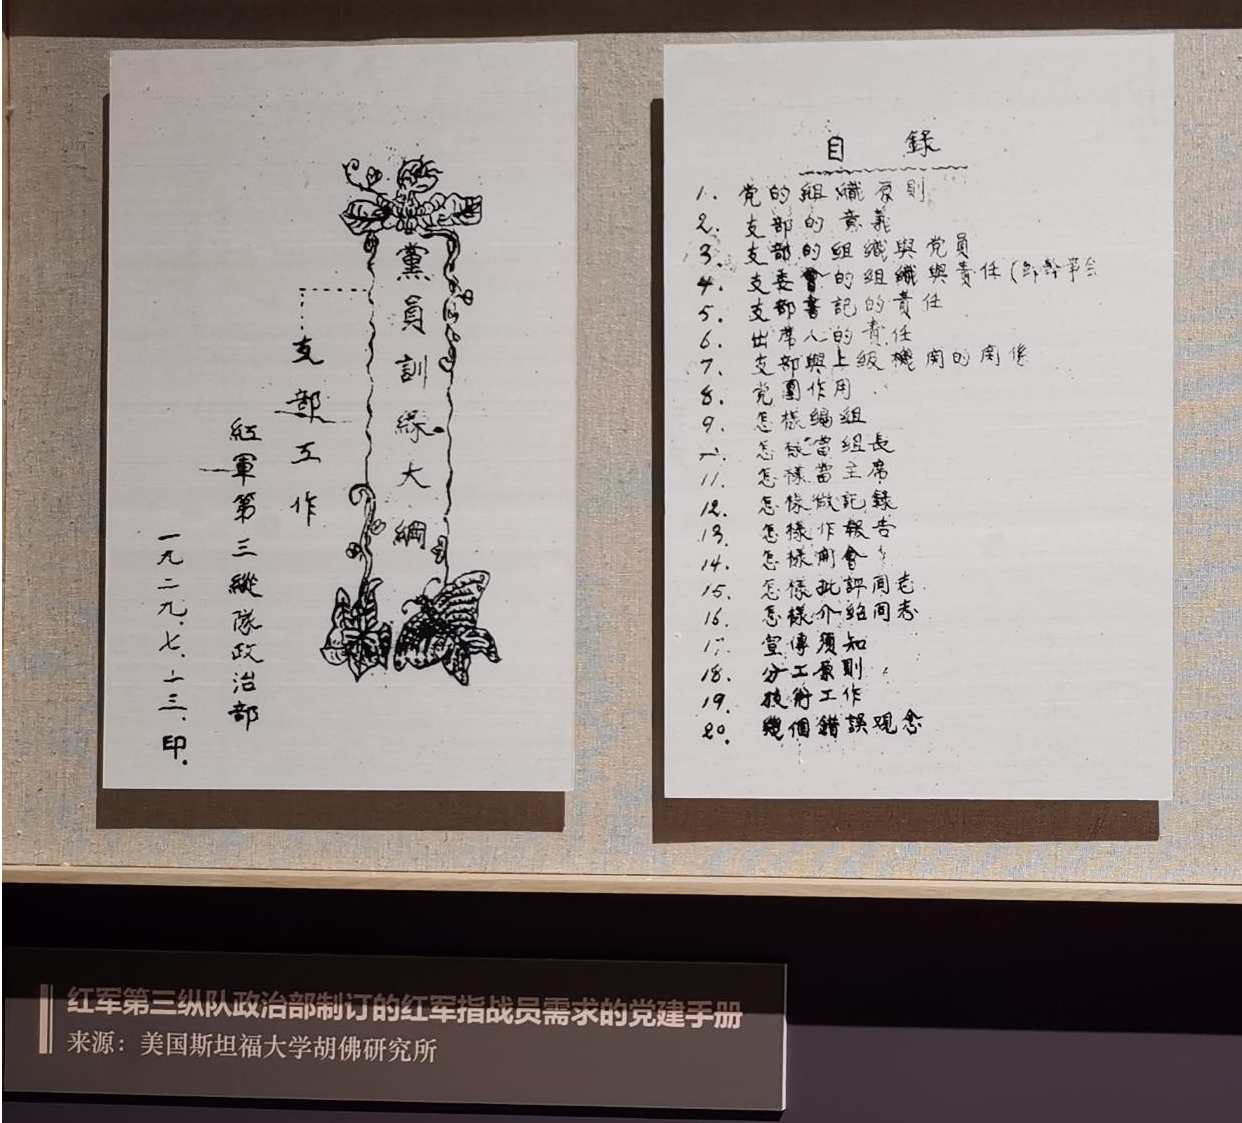 黨員訓練大綱
支部工作
紅軍第三縱隊政治部
一九二九.七.十三.印.
目錄
1. 党的組織原則
2. 支部的意義
3. 支部的組織與党員
4. 支委會的組織與責任(即幹事会
5. 支部書記的責任
6. 出席人的責任
7. 支部與上級機関的関係
8. 党團作用
9. 怎樣編組
怎樣當組長
11. 怎樣當主席
12. 怎樣做記錄
13. 怎樣作報告
14. 怎樣開會
15. 怎樣批評同志
16. 怎樣介紹同志
17. 宣傳須知
18. 分工原則
19. 技術工作
20. 幾個錯誤观念
红军第三纵队政治部制订的红军指战员需求的党建手册
来源：美国斯坦福大学胡佛研究所